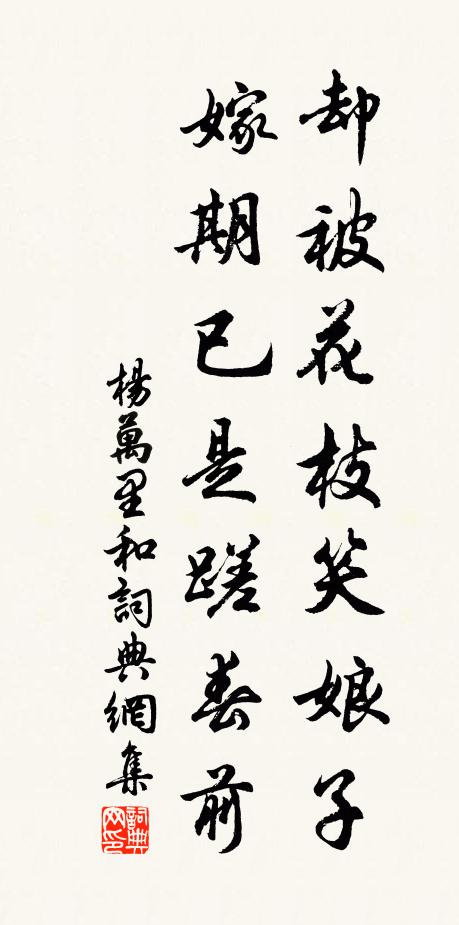 却被花枝笑娘子
嫁期已是蹉春前
楊萬里和詞典網集
詞典网印